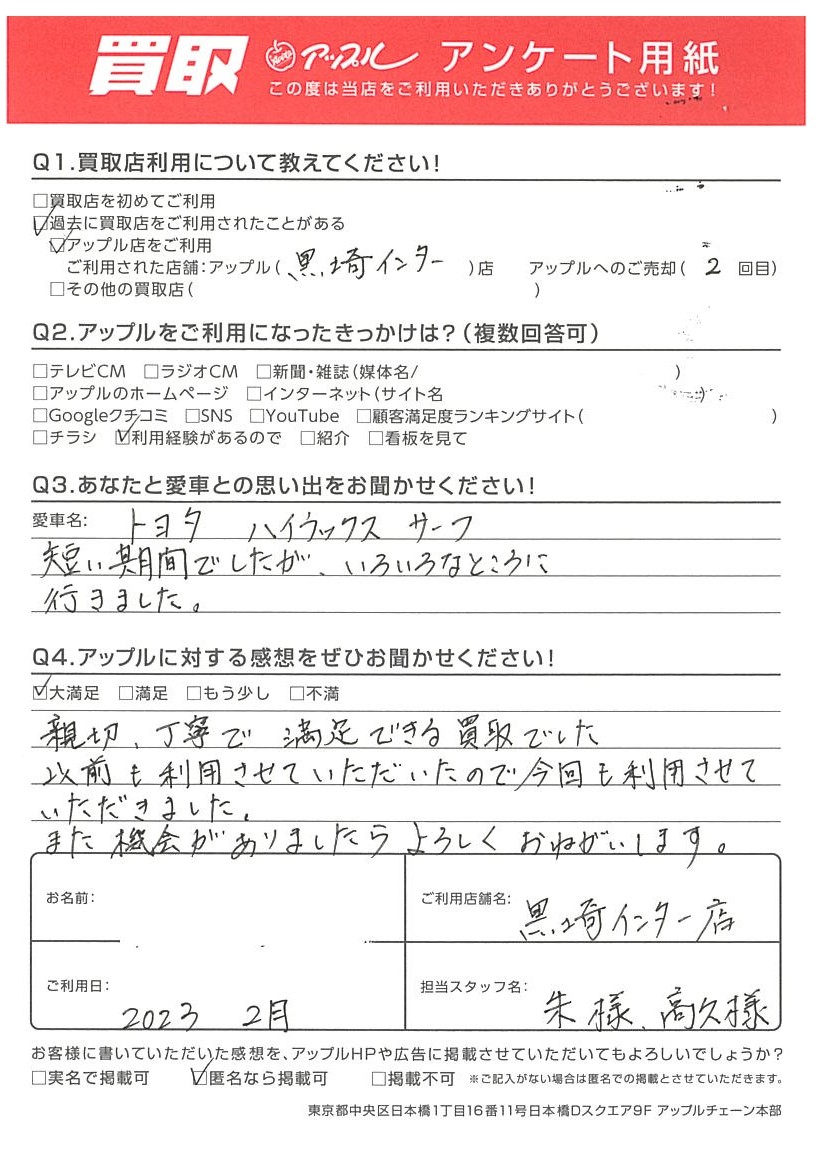 買取 アップル アンケート用紙
この度は当店をご利用いただきありがとうございます!
Q1.買取店利用について教えてください!
□買取店を初めてご利用
☑過去に買取店をご利用されたことがある
☑アップル店をご利用
ご利用された店舗:アップル( 黒埼インター )店 アップルへのご売却( 2 回目)
□その他の買取店( )
Q2.アップルをご利用になったきっかけは?(複数回答可)
□テレビCM □ラジオCM □新聞・雑誌(媒体名/ )
□アップルのホームページ □インターネット(サイト名 )
□Googleクチコミ □SNS □YouTube □顧客満足度ランキングサイト( )
□チラシ ☑利用経験があるので □紹介 □看板を見て
Q3.あなたと愛車との思い出をお聞かせください!
愛車名: トヨタ ハイラックス サーフ
短い期間でしたが、いろいろなところに
行きました。
Q4.アップルに対する感想をぜひお聞かせください!
☑大満足 □満足 □もう少し □不満
親切、丁寧で 満足できる買取でした
以前も利用させていただいたので今回も利用させて
いただきました。
また機会がありましたらよろしくおねがいします。
お名前:
ご利用店舗名: 黒埼インター店
ご利用日: 2023 2月
担当スタッフ名: 朱様、高久様
お客様に書いていただいた感想を、アップルHPや広告に掲載させていただいてもよろしいでしょうか?
□実名で掲載可 ☑匿名なら掲載可 □掲載不可 ※ご記入がない場合は匿名での掲載とさせていただきます。
東京都中央区日本橋1丁目16番11号日本橋Dスクエア9F アップルチェーン本部